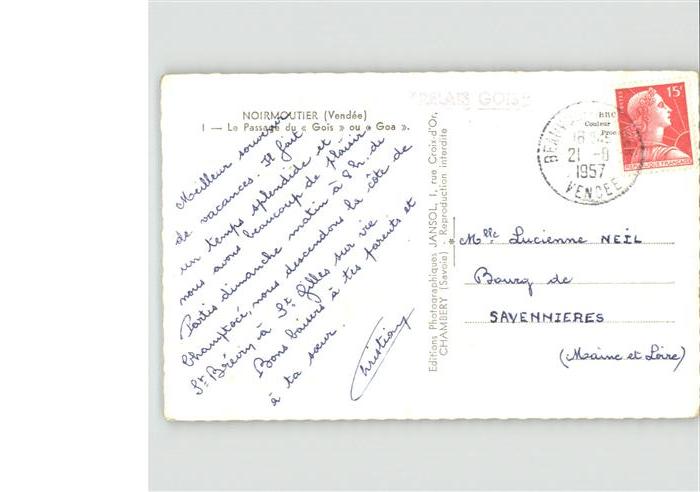 NOIRMOUTIER (Vendée)
1 — Le Passage du « Gois » ou « Goa ».
Meilleur souvenir
de vacances. Il fait
un temps splendide et
nous avons beaucoup de plaisir.
Partis dimanche matin à 8 h. de
Champtocé, nous descendons la côte de
St Brévin à St Gilles sur vie
Bons baisers à tes parents et
à ta sœur.
Christian
Editions Photographiques JANSOL, 1, rue Croix-d'Or,
CHAMBERY (Savoie) - Reproduction interdite
RELAIS GOIS
15F
REPUBLIQUE FRANÇAISE
21 -
1957
VENDEE
Mlle Lucienne NEIL
Bourg de
SAVENNIERES
(Maine et Loire)